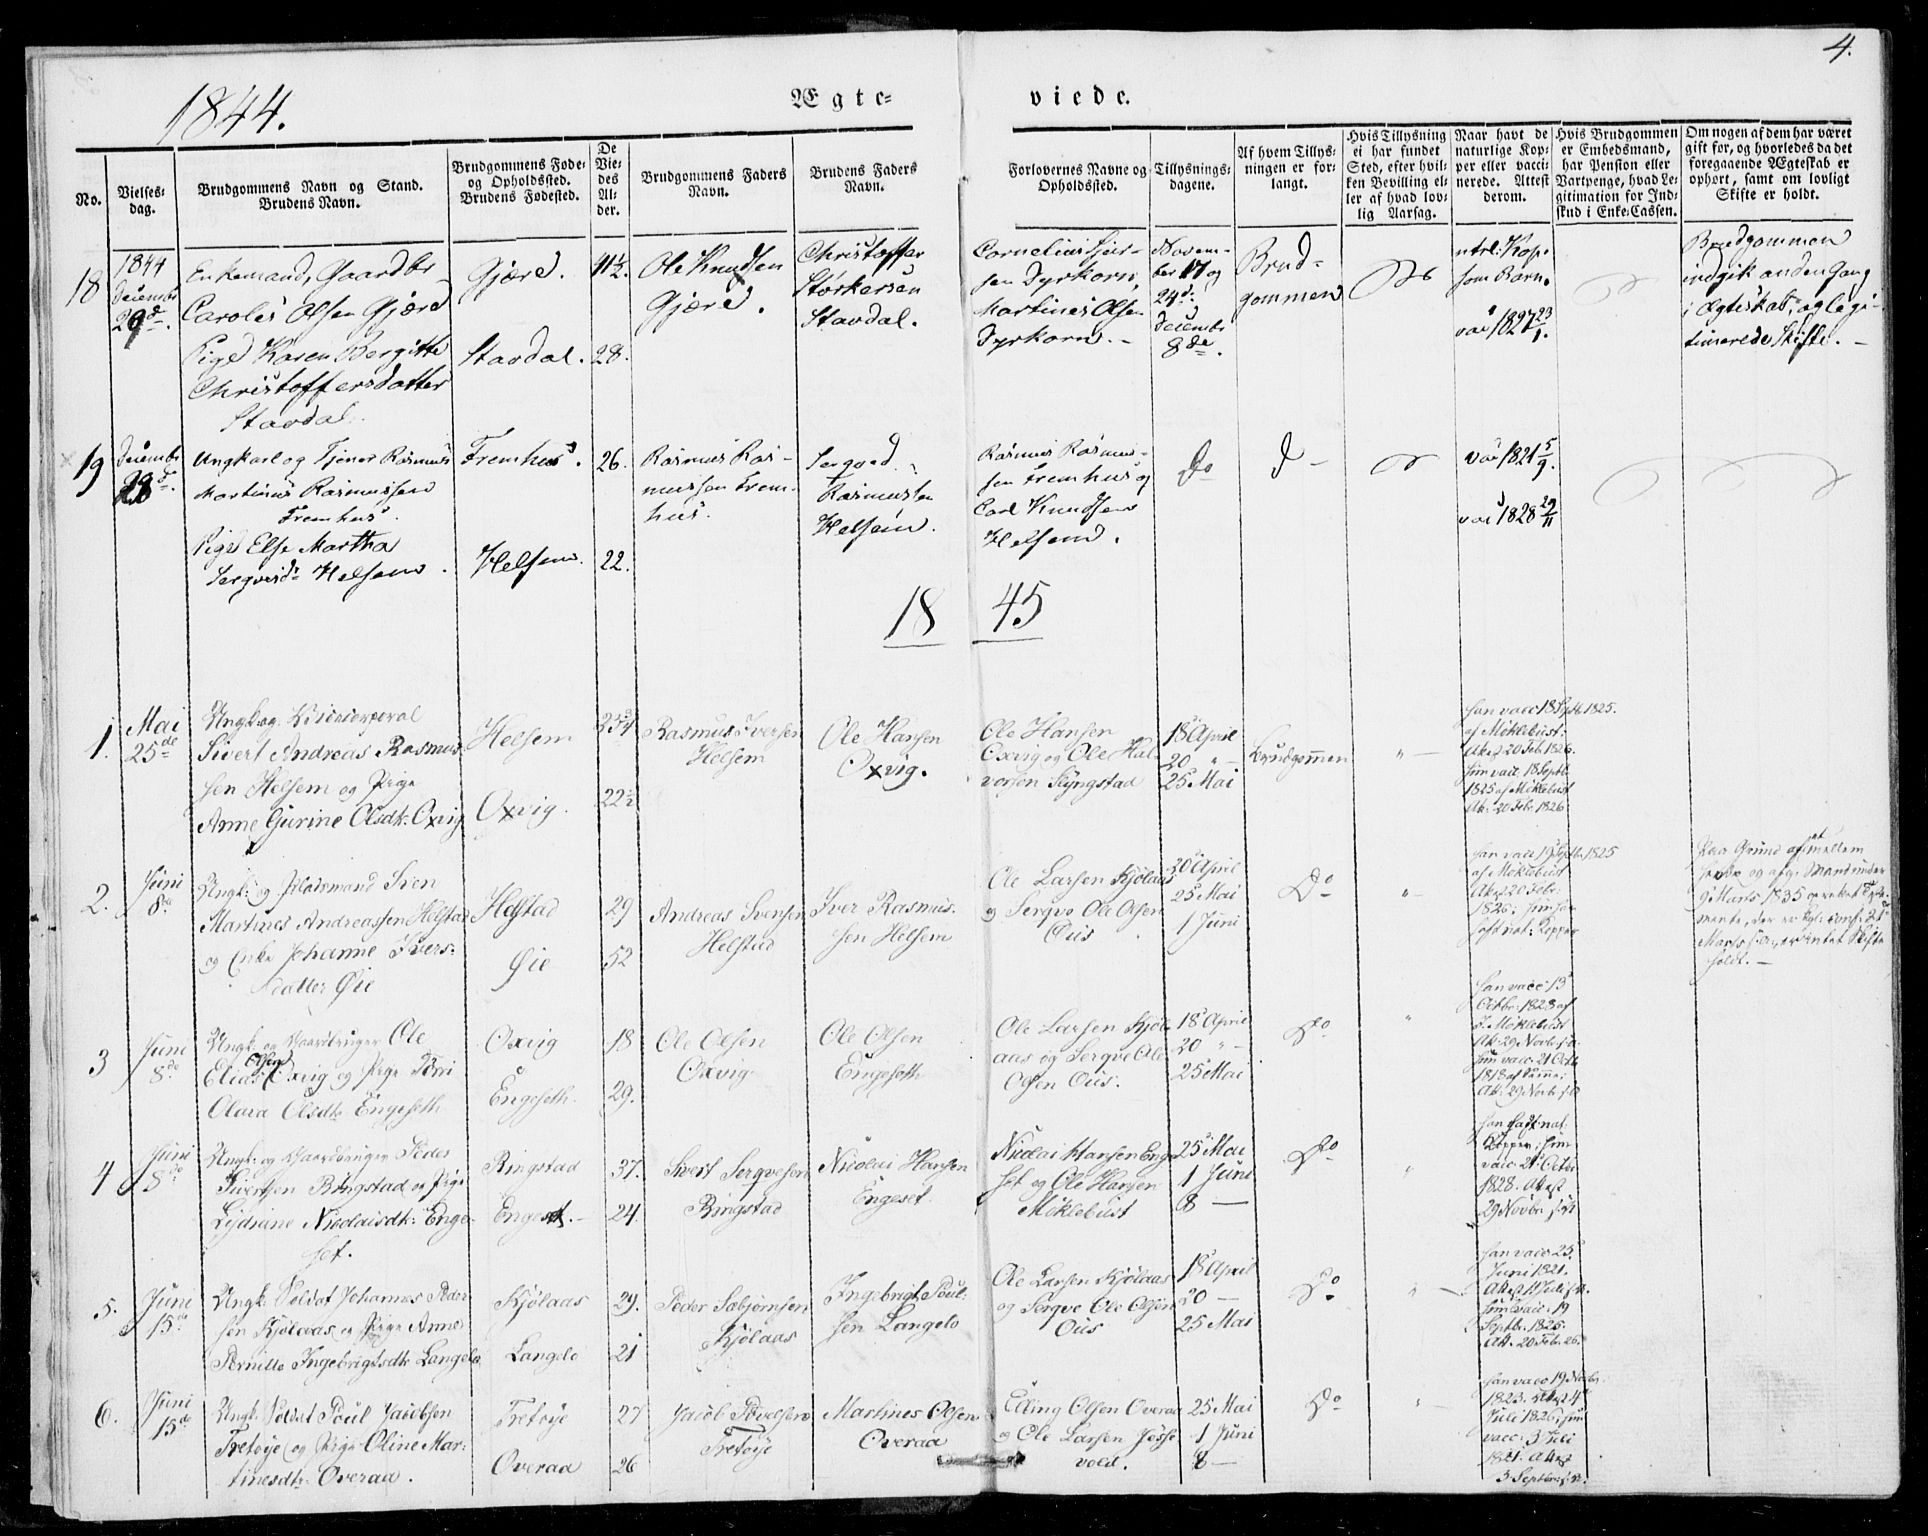 4.
1844.
Ægte=
viede.
No.
Vielses-
dag.
Brudgommens Navn og Stand.
Brudens Navn.
Brudgommens Føde-
og Opholdssted.
Brudens Fødested.
De
Vie-
des
Al-
der.
Brudgommens Faders
Navn.
Brudens Faders
Navn.
Forlovernes Navne og
Opholdssted.
Tillysnings-
dagene.
Af hvem Tillys-
ningen er for-
langt.
Hvis Tillysning
ei har fundet
Sted, efter hvil-
ken Bevilling el-
ler af hvad lov-
lig Aarsag.
Naar havt de
naturlige Kop-
per eller vacci-
nerede. Attest
derom.
Hvis Brudgommen
er Embedsmand,
har Pension eller
Vartpenge, hvad Le-
gitimation for Ind-
skud i Enke-Cassen.
Om nogen af dem har været
gift før, og hvorledes da det
foregaaende Ægteskab er
ophørt, samt om lovligt
Skifte er holdt.
18
1844
Decembr
29d.
Enkemand, Gaardbr
Caroles Olsen Gjære
Pige Karen Bergitte
Christoffersdatter
Stavdal.
Gjære.
Stavdal.
41½.
28.
Ole Knudsen
Gjære.
Christoffer
Størkersen
Stavdal.
Cornelius
sen Dyrkorn,
Martines Olsen
Dyrkorn. -
Novem-
ber 17 og
24d:
Decembr
8de.
Brud-
gommen
ntrl: Kop.
som Barn.
vac 1827 23/1.
Brudgommen
indgik anden Gang
i Ægteskab, og legi-
timerede Skifte. -
19
Decembr
Ungkarl og Tjener Rasmus
Martinus Rasmussen
Fremhus.
Pige Else Martha
Helsem.
Fremhus.
Helsem.
26.
22.
Rasmus Ras-
mussen Frem-
hus.
Rasmussen
Helsem.
Rasmus Rasmus-
sen Fremhus og
Carl Knudsen
Helsem.
Do
vac 1821 5/9.
vac 1828 29/11
18 45
1.
Mai
25de
Ungk: og
Sivert Andreas Rasmus
sen Helsem og Pige
Anne Gurine Olsdt: Oxvig
Helsem
Oxvig.
22½
Rasmus Iversen
Helsem
Ole Hansen
Oxvig.
Ole Hansen
Oxvig og Ole Hal-
vorsen
18 April
20 " -
25 Mai
Brudgommen
"
han vacc 18 Septb. 1825.
af Møklebust:
Atest 20 Feb. 1826.
hun vacc. 18 Septb.
1825 af Møklebust
At: 20 Febr. 1826
2.
Juni
8de
Ungk: og Pladsmand Sven
Martines Andreassen Helstad
og Enke Johanne Ivers-
datter Øie
Helstad
Øie
29
52
Andreas Svensen
Helstad
Iver Rasmus-
sen Helsem
Ole Larsen Kjølaas
og Serqve Ole Olsen
Ous
20 April
25 Mai
1 Juni
Do
"
han vacc 19 Septb. 1825
af Møklebust
Atest 20 Febr:
1826; hun har
havt nat: Kopper
Paa Grund af
9 Marts 1835
holdt. -
3
Juni
8de
Ungk: og Gaardbruger Ole
Elias Olsen Oxvig og Pige
Olava Olsdtr Engeseth
Oxvig
Engeseth.
18
29.
Ole Olsen
Oxvig
Ole Olsen
Engeseth
Ole Larsen Kjøl-
aas og Serqve Ole
Olsen Ous.
18 April
20 " -
25 Mai
Do
"
han vacc: 13
Octbr: 1828 af
J. Møklebust
At: 29 Novbr s.A.
hun vacc: 21 Octbr
1818 af samme;
At: 29 Novbr s.A
4
Juni
8de
Ungk: og Gaardbruger Peder
Sivertsen Ringstad og Pige
Lydiane Nicolaisdt: Enge-
set.
Ringstad
Engeset. -
37.
24.
Sivert Serqvesen
Ringstad
Nicolai Hansen
Engeset
Nicolai Hansen Enge
set og Ole Hansen
Møklebust
25 Mai
1 Juni
8 -
Do
"
han havt nat.
Kopper; hun
vacc 21 Octbr
1828. Attest
29 Novbr s.A
5.
Juni
15de
Ungk: Soldat Johannes Peder
sen Kjølaas og Pige Anne
Pernille Ingebrigtsdt: Langelo
Kjølaas
Langelo
29.
21
Peder Sæbjørnsen
Kjølaas
Ingebrigt Poul-
sen Langelo
Ole Larsen Kjølaas
og Serqve Ole Olsen
Ous
18 April
20 -
25 Mai
Do
"
han vacc 25
Juni 1821.
Attest 11 Juli s.A.
hun vacc: 19
Septb: 1825.
Att. 20 Febr. 26.
6.
Juni
15de
Ungk: Soldat Poul Jacobsen
Tretøye og Pige Oline Mar-
tinesdt: Overaa.
Tretøye
Overaa
27
26
Jacob Povelsen
Tretøye
Martines Olsen
Overaa
Elling Olsen Overaa
og Ole Larsen Jesse
vold.
25 Mai
1 Juni
8 -
Do
"
han vacc 19 Novbr.
1823. Attest 4
Juli 1826; hun
vacc: 3 Juli
1821. Attest
3 Septbr: s.A.